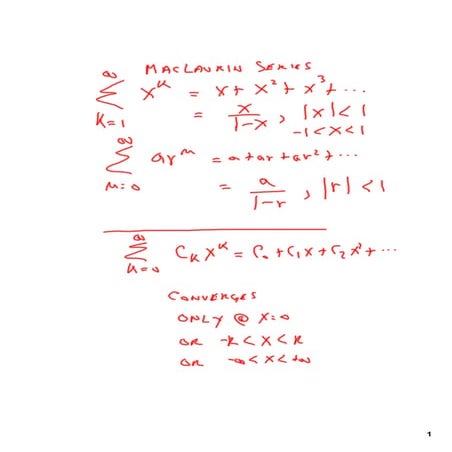 MACLAURIN SERIES
∞ ∑ k=1 x^k = x + x² + x³ + ...
= x/(1-x), |x| < 1
-1 < x < 1
∞ ∑ n=0 ar^n = a + ar + ar² + ...
= a/(1-r), |r| < 1
∞ ∑ k=0 C_k x^k = C₀ + C₁x + C₂x² + ...
CONVERGES
ONLY @ X=0
OR -R < X < R
OR -∞ < X < +∞
1